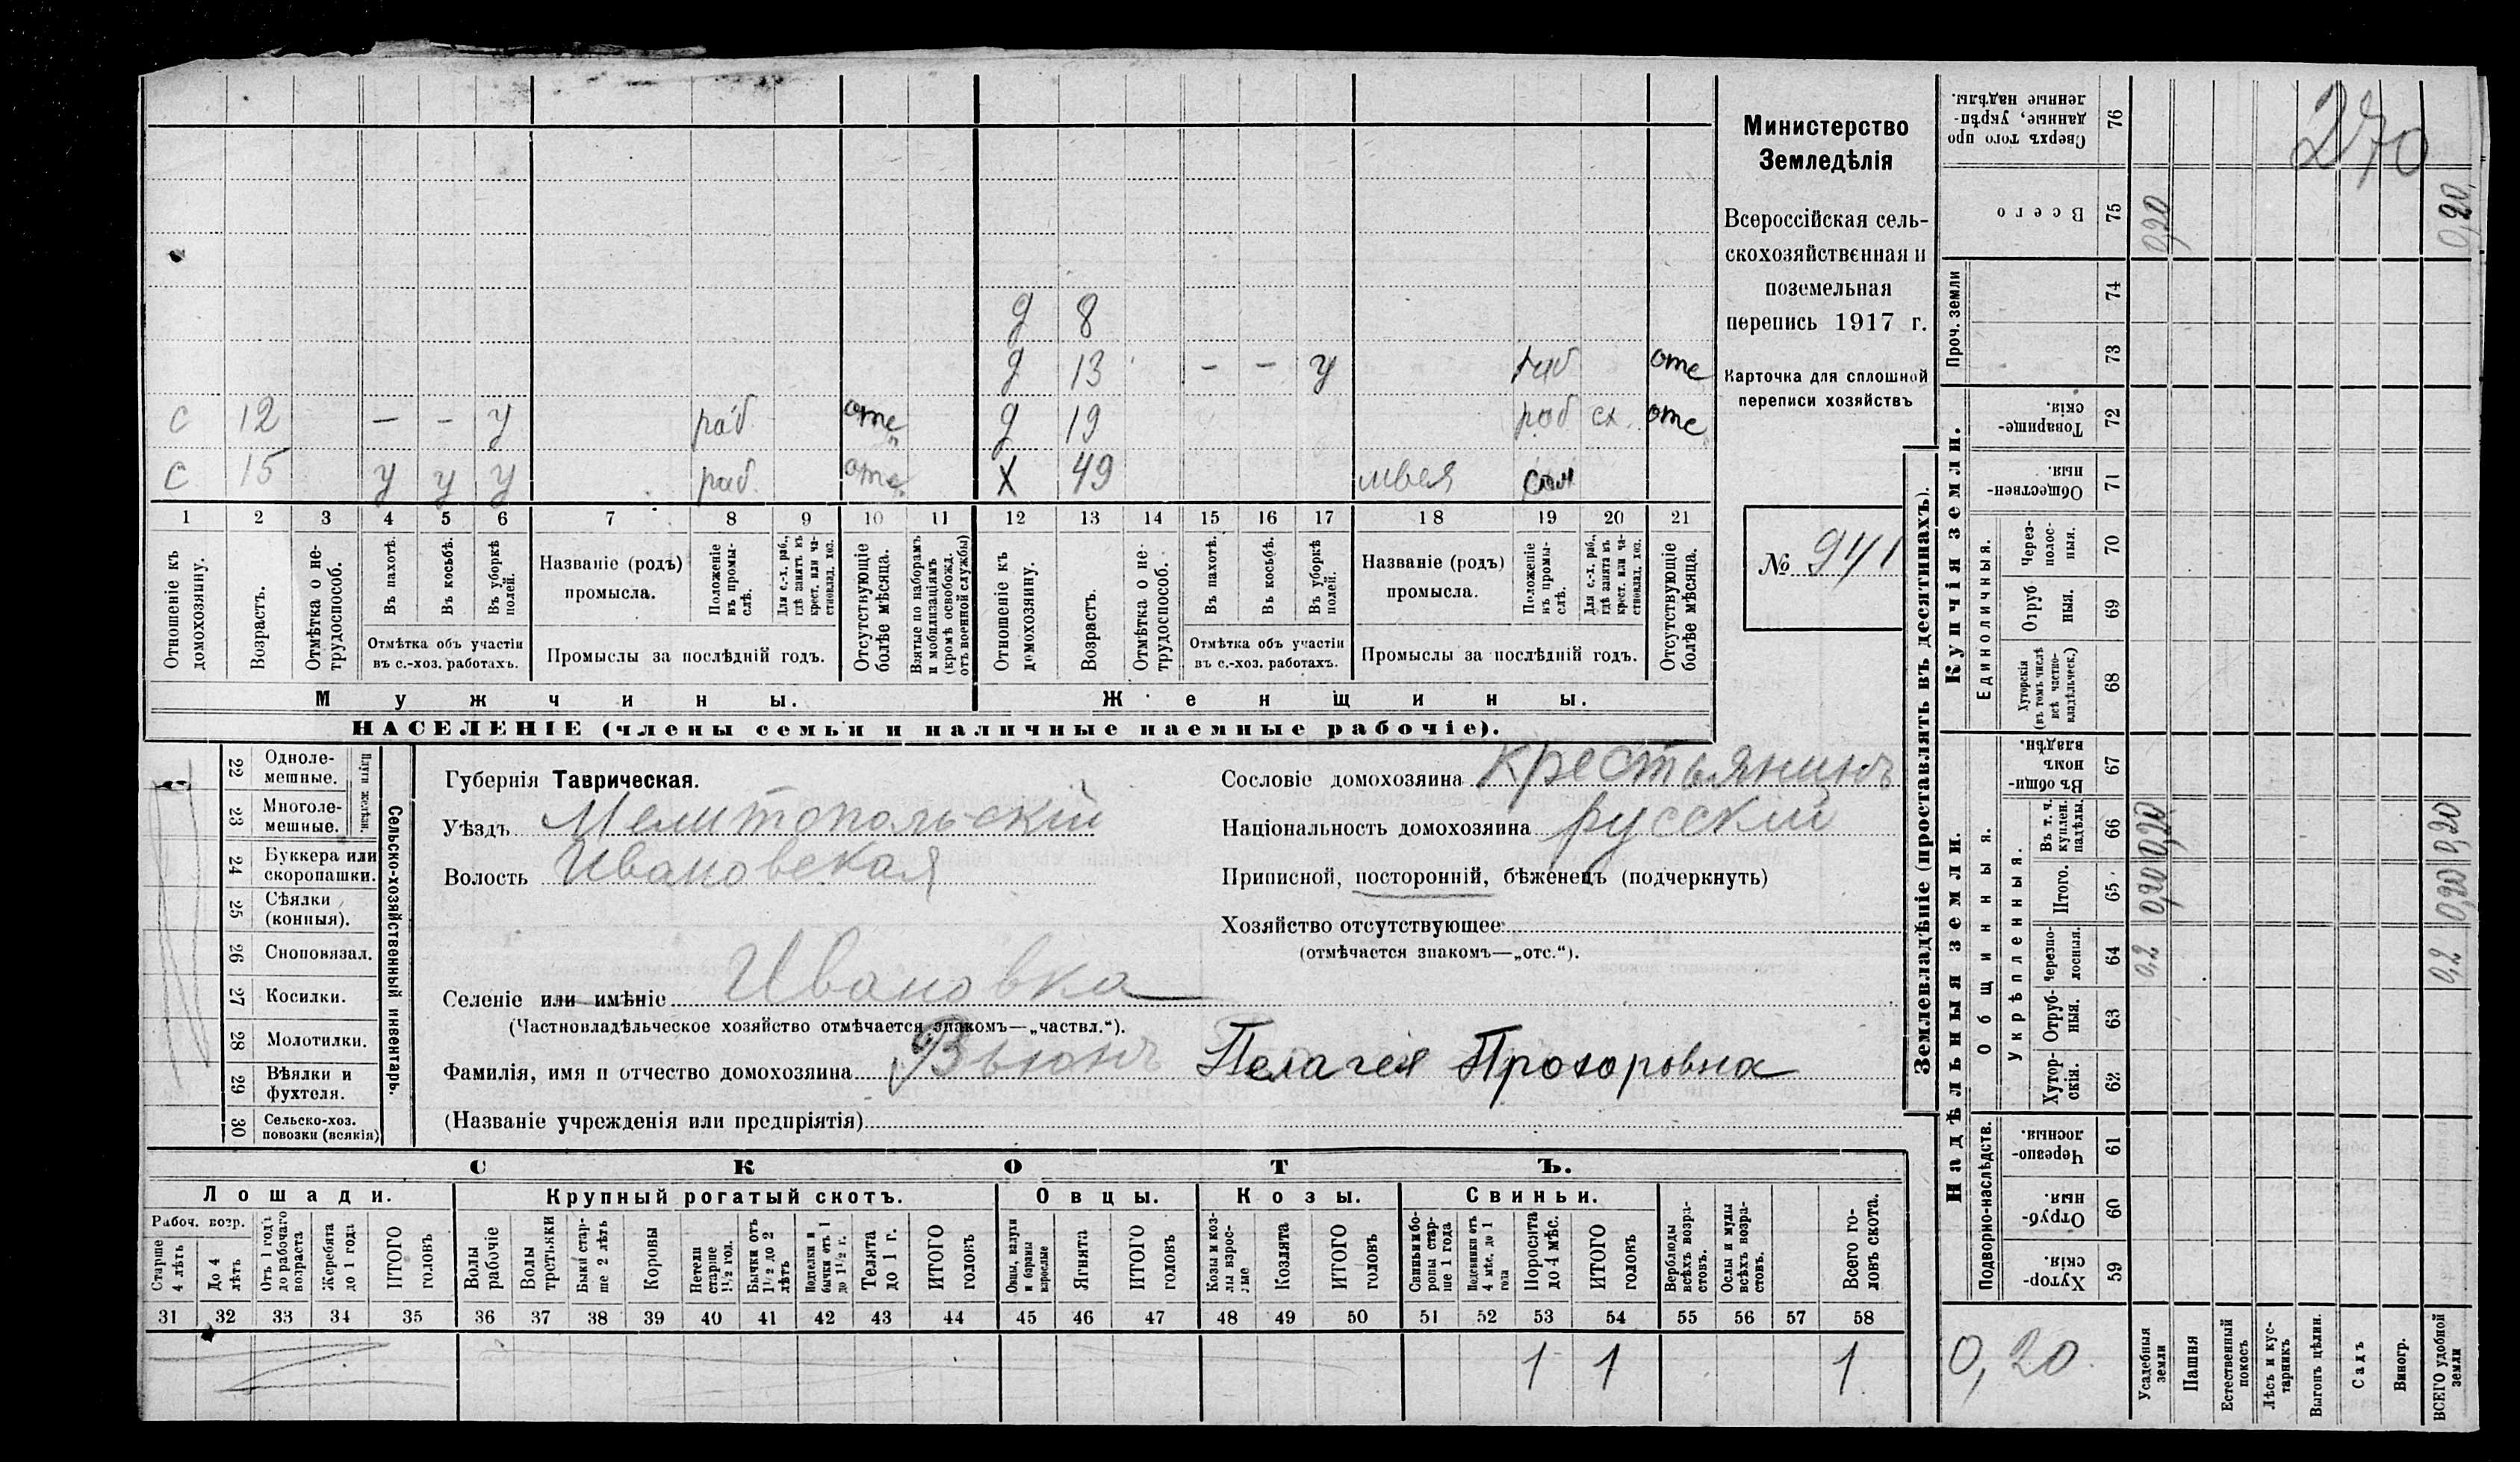 Министерство
Земледѣлія
Всероссійская сель-
скохозяйственная и
поземельная
перепись 1917 г.
Карточка для сплошной
переписи хозяйствъ
№ 941
д 8
д 13 - - у раб отс
с 12 - - у раб отс д 19 раб сх. отс
с 15 у у у раб. отс. Х 49 швея
1 2 3 4 5 6 7 8 9 10 11 12 13 14 15 16 17 18 19 20 21
Отношеніе къ домохозяину.
Возрастъ.
Отмѣтка о не-трудоспособ.
Въ пахотѣ.
Въ косьбѣ.
Въ уборкѣ полей.
Отмѣтка объ участіи
въ с.-хоз. работахъ.
Названіе (родъ)
промысла.
Положеніе въ промы-слѣ.
Для с.-х. раб., гдѣ занятъ въ крест. или ча-стновлад. хоз.
Промыслы за послѣдній годъ.
Отсутствующіе болѣе мѣсяца.
Взятые по наборамъ и мобилизаціямъ (кромѣ освобожд. отъ военной службы)
Отношеніе къ домохозяину.
Возрастъ.
Отмѣтка о не-трудоспособ.
Въ пахотѣ.
Въ косьбѣ.
Въ уборкѣ полей.
Отмѣтка объ участіи
въ с.-хоз. работахъ.
Названіе (родъ)
промысла.
Положеніе въ промы-слѣ.
Для с.-х. раб., гдѣ занята въ крест. или ча-стновлад. хоз.
Промыслы за послѣдній годъ.
Отсутствующіе болѣе мѣсяца.
Мужчины. Женщины.
НАСЕЛЕНІЕ (члены семьи и наличные наемные рабочіе).
22 Одноле-мешные.
23 Многоле-мешные.
Плуги желѣзн.
24 Буккера или скоропашки.
25 Сѣялки (конныя).
26 Сноповязал.
27 Косилки.
28 Молотилки.
29 Вѣялки и фухтеля.
30 Сельско-хоз. повозки (всякія)
Сельско-хозяйственный инвентарь.
Губернія Таврическая.
Уѣздъ Мелитопольскій
Волость Ивановская
Селеніе или имѣніе Ивановка
(Частновладѣльческое хозяйство отмѣчается знакомъ—„частвл.“).
Сословіе домохозяина крестьянинъ
Національность домохозяина русскій
Приписной, посторонній, бѣженецъ (подчеркнуть)
Хозяйство отсутствующее
(отмѣчается знакомъ—„отс.“).
Фамилія, имя и отчество домохозяина Вьюнъ Пелагея Прохоровна
(Названіе учрежденія или предпріятія)
СКОТЪ.
Лошади. Крупный рогатый скотъ. Овцы. Козы. Свиньи.
Рабоч. возр.
Старше 4 лѣтъ
До 4 лѣтъ
Отъ 1 года до рабочаго возраста
Жеребята до 1 года
ИТОГО головъ
Волы рабочіе
Волы третьяки
Быки стар-ше 2 лѣтъ
Коровы
Нетели старше 1½ год.
Бычки отъ 1½ до 2 лѣтъ
Подтелки и бычки отъ 1 до 1½ г.
Телята до 1 г.
ИТОГО головъ
Овцы, валухи и бараны взрослые
Ягнята
ИТОГО головъ
Козы и коз-лы взрос-лые
Козлята
ИТОГО головъ
Свиньи и бо-ровы стар-ше 1 года
Подсвинки отъ 4 мѣс. до 1 года
Поросята до 4 мѣс.
ИТОГО головъ
Верблюды всѣхъ возра-стовъ.
Ослы и мулы всѣхъ возра-стовъ.
Всего го-ловъ скота.
31 32 33 34 35 36 37 38 39 40 41 42 43 44 45 46 47 48 49 50 51 52 53 54 55 56 57 58
1 1 1
Землевладѣніе (проставлять въ десятинахъ).
Надѣльныя земли. Купчія земли.
Проч. земли
Подворно-наслѣдств.
Общинныя.
Укрѣпленныя.
Единоличныя.
Сверхъ того про данные, укрѣп-ленные надѣлы. 76
Всего 75
74
73
Товарище-скія. 72
Обществен-ныя. 71
Через-полос-ныя. 70
Отруб ныя. 69
Хуторскія (въ томъ числѣ всѣ частно-владѣльческ.) 68
Въ общин-номъ владѣн. 67
Въ т. ч. куплен. надѣлы. 66
Итого. 65
Черезпо-лосныя. 64
Отруб-ныя. 63
Хутор-скія. 62
Черезпо-лосныя. 61
Отруб-ныя. 60
Хутор-скія. 59
270
0,20 0,20
0,20 0,20
0,20 0,20
0,2 0,2
0,20
Усадебныя земли
Пашня
Естественный покосъ
Лѣсъ и кус-тарникъ
Выгонъ цѣлин.
Садъ
Виногр.
ВСЕГО удобной земли